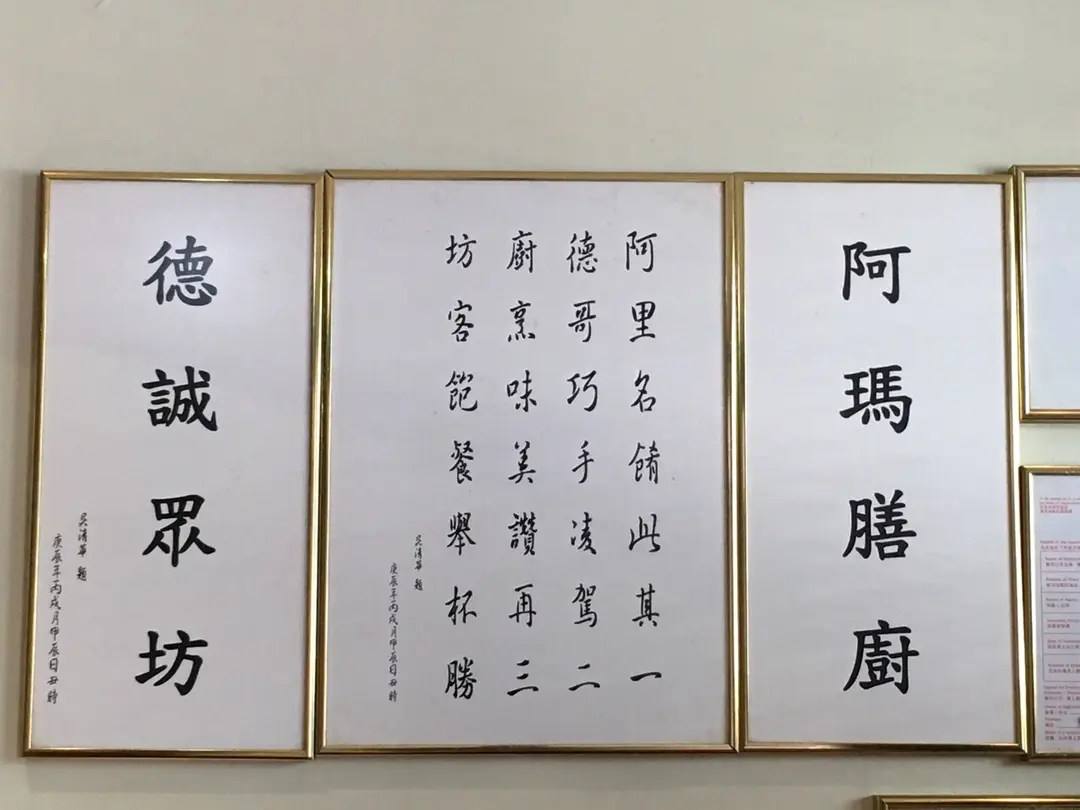 阿瑪膳廚
阿里名餚此其一
德哥巧手凌駕二
廚烹味美讚再三
坊客飽餐舉杯勝
吴清華 題
庚辰年丙戌月甲辰日丑時
德誠眾坊
吴清華 題
庚辰年丙戌月甲辰日丑時